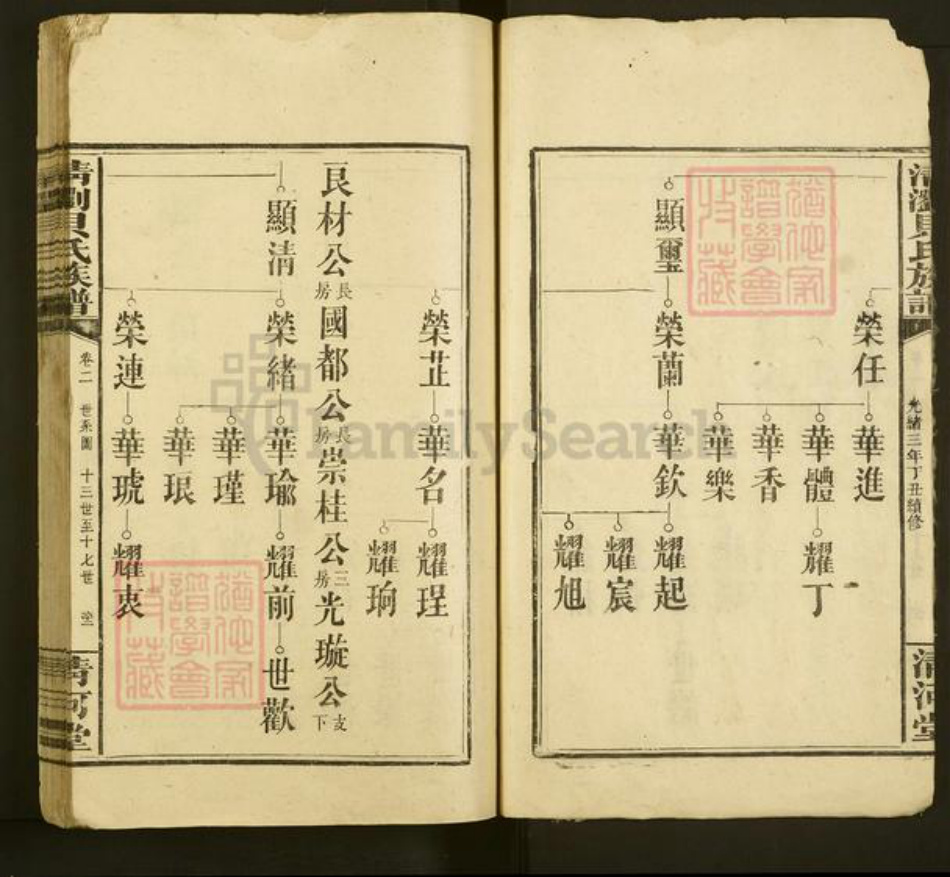 清瀏貝氏族譜
光緒三年丁丑續修
清河堂
榮任
華進
華體
耀丁
華香
華樂
顯璽
榮蘭
華欽
耀起
耀宸
耀旭
榮芷
華名
耀珵
耀珦
良材公長房國都公長房崇桂公三房光璇公支下
顯清
榮緒
華瑜
耀前
世歡
華瑾
華琅
榮連
華琥
耀衷
清瀏貝氏族譜
卷二
世系圖
十三世至十七世
清河堂
FamilySearch